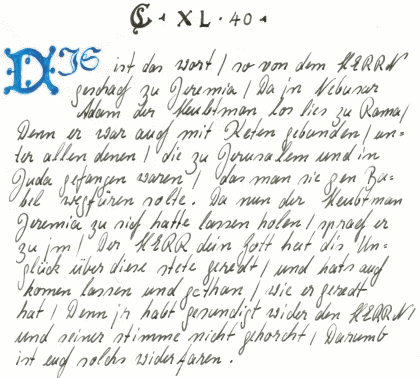 C · XL · 40 ·
DJS ist das wort / so von dem HERRN
geschach zu Jeremia / Da jn Nebusar
Adam der Heubtman los lies zu Rama /
Denn er war auch mit Keten gebunden / un-
ter allen denen / die zu Jerusalem und in
Juda gefangen waren / das man sie gen Ba-
bel wegfüren solte. Da nun der Heubtman
Jeremia zu sich hatte lassen holen / sprach er
zu jm / Der HERR dein Gott hat dis Un-
glück über diese stete geredt / und hats auch
komen lassen und gethan / wie er geredt
hat / Denn jr habt gesundigt wider den HERRN /
und seiner stimme nicht gehorcht / Darumb
ist euch solchs widerfaren.